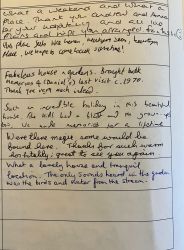 What a weekend and What a
Place. Thank you Andrew and
for your
and help you arranged for us
this place feels like home
place, we hope to come back sometime!
Fabulous house & gardens. Brought back
memories of last visit c. 1970.
Thank you very much indeed
Such an incredible holiday in this beautiful
house. The kids had a blast and the grown-ups
too. We made memories for a lifetime
Were there magic some would be
found here. Thanks for such warm
hospitality; great to see you again
What a lovely house and tranquil
location. The only sounds heard in the garden
was the birds and water from the stream.